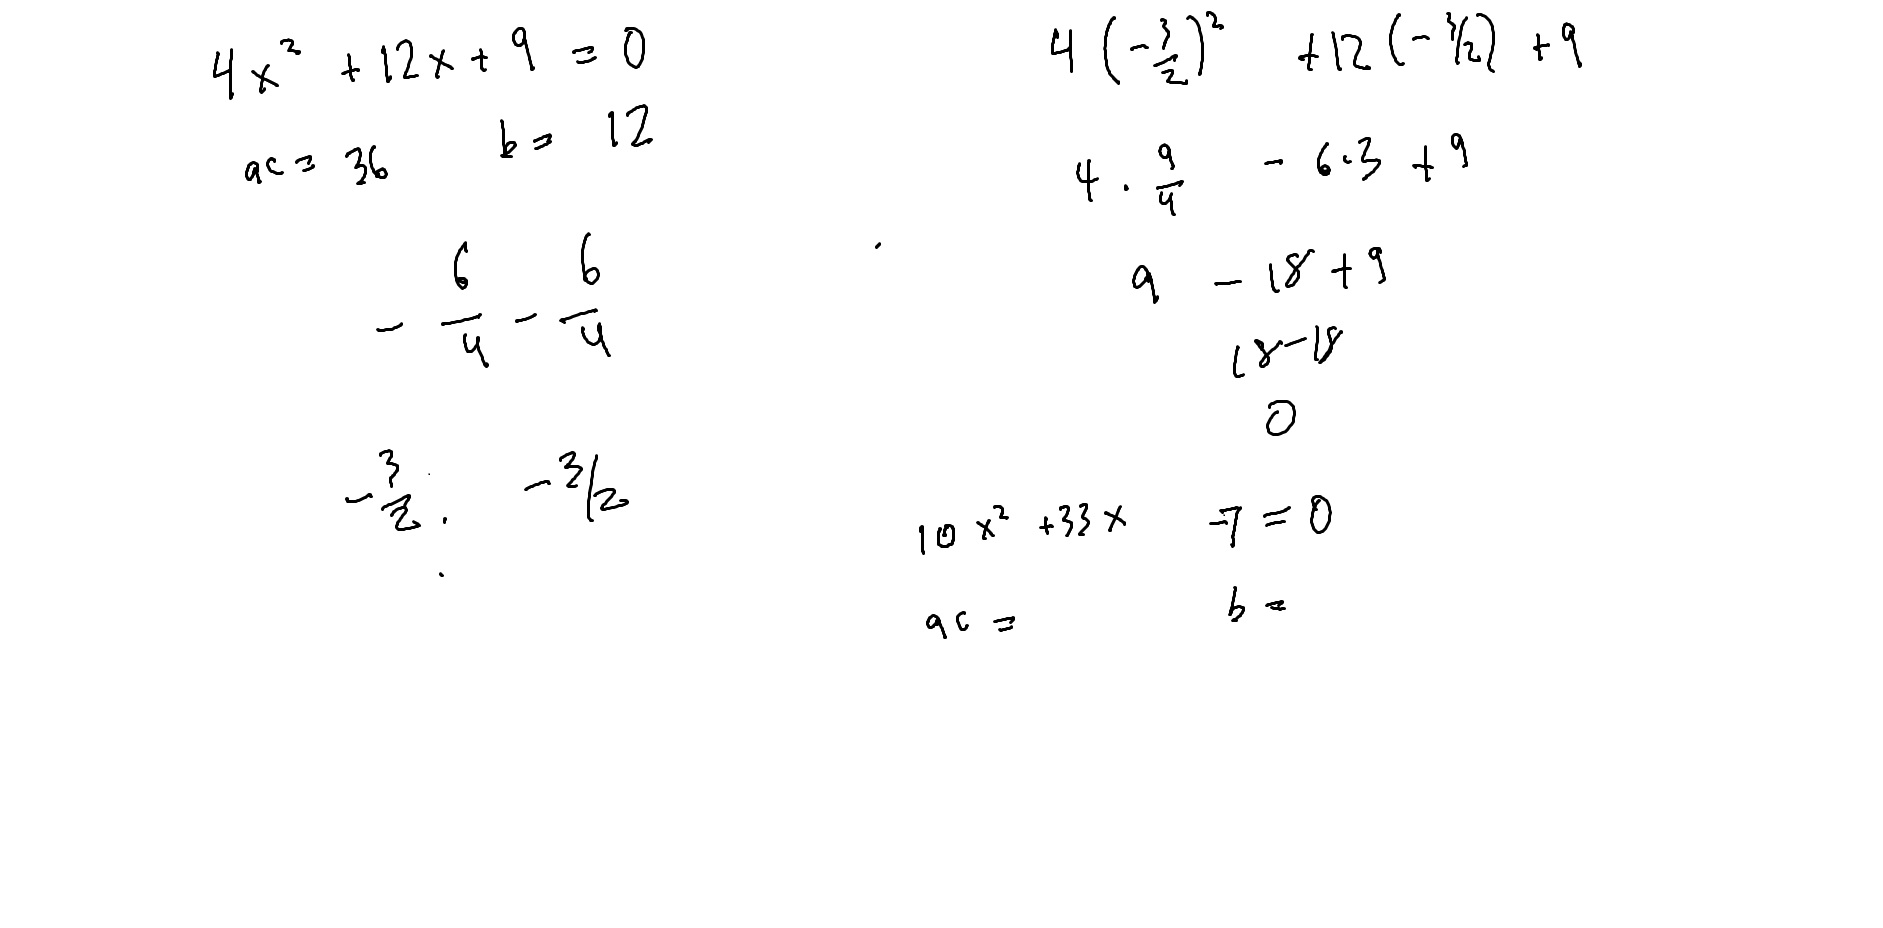 4x² + 12x + 9 = 0
ac = 36 b = 12
- 6/4 - 6/4
- 3/2 . - 3/2
4 (-3/2)² + 12 (-3/2) + 9
4 . 9/4 - 6.3 + 9
9 - 18 + 9
18 - 18
0
10x² + 33x -7 = 0
ac = b =